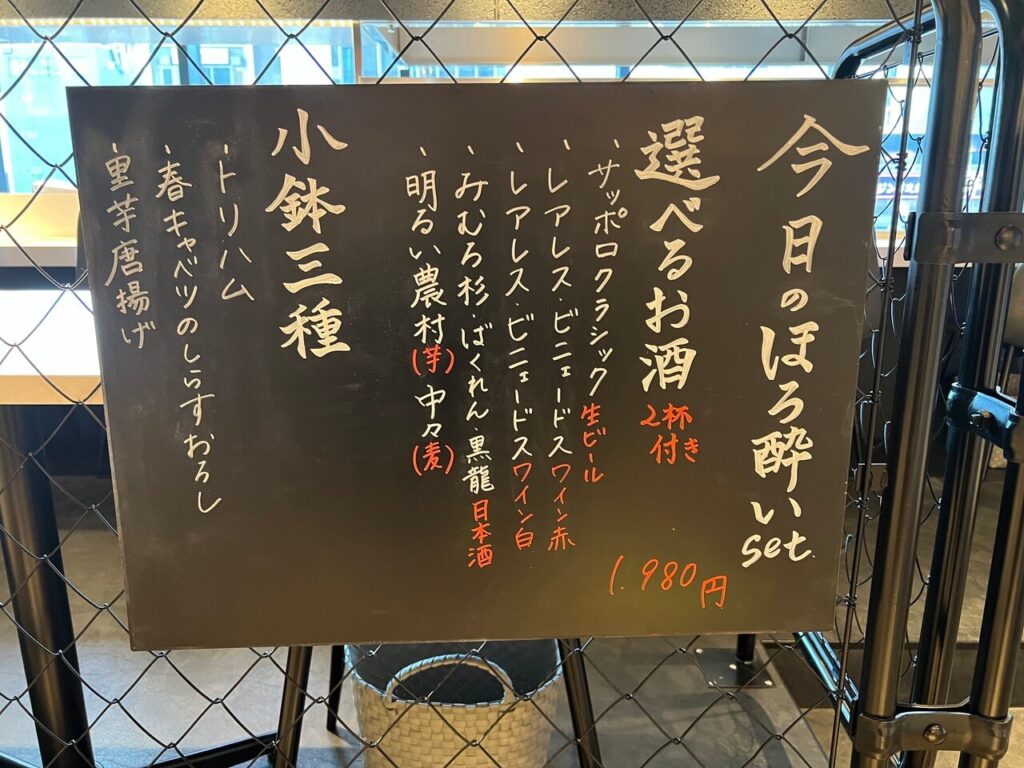 今日のほろ酔いset
選べるお酒 2杯付き
、サッポロクラシック 生ビール
、レアレス・ビニェードス ワイン赤
、レアレス・ビニェードス ワイン白
、みむろ杉・ばくれん・黒龍 日本酒
、明るい農村(芋) 中々(麦)
1.980円
小鉢三種
、トリハム
、春キャベツのしらすおろし
、里芋唐揚げ